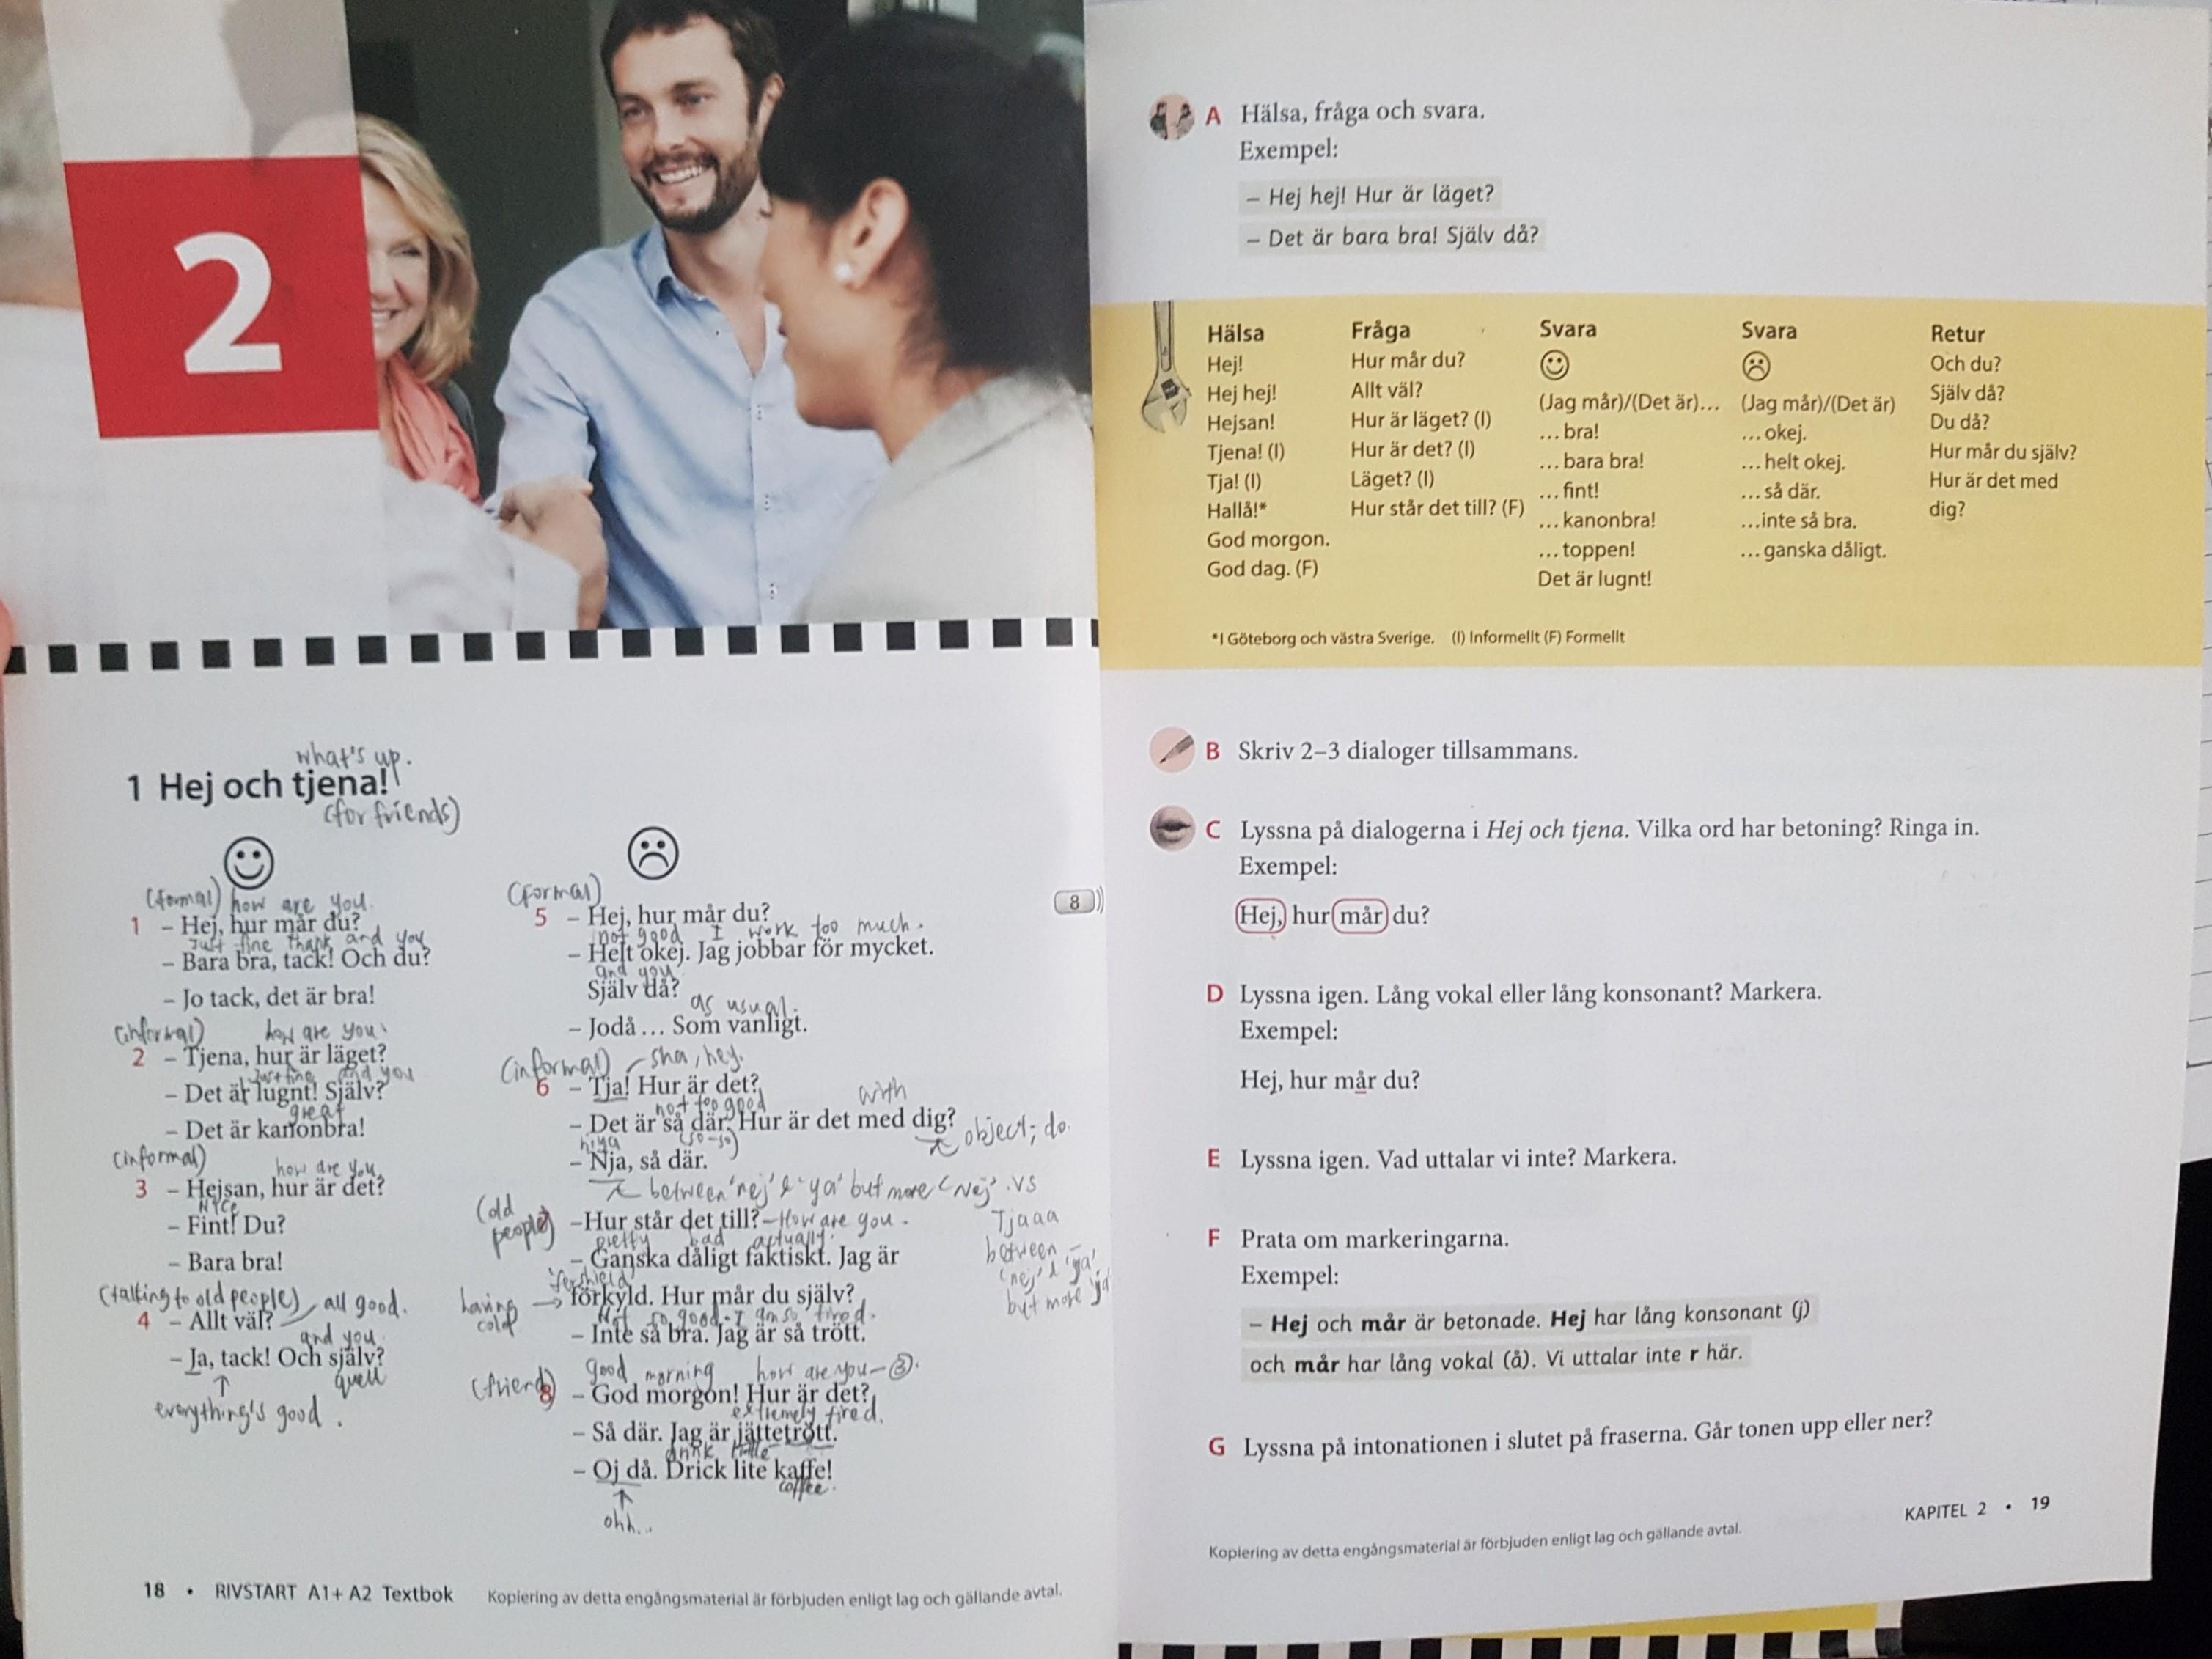 2
what's up.
1 Hej och tjena!
(for friends)
(formal) how are you.
1 – Hej, hur mår du?
Just fine thank and you
– Bara bra, tack! Och du?
– Jo tack, det är bra!
(informal) how are you.
2 – Tjena, hur är läget?
Just fine and you
– Det är lugnt! Själv?
great
– Det är kanonbra!
(informal)
how are you
3 – Hejsan, hur är det?
Nice
– Fint! Du?
– Bara bra!
(talking to old people) all good.
4 – Allt väl?
and you
– Ja, tack! Och själv?
everything's good.
(formal)
5 – Hej, hur mår du?
not good I work too much.
– Helt okej. Jag jobbar för mycket.
and you
Själv då?
as usual.
– Jodå ... Som vanligt.
(informal) sha, hey.
6 – Tja! Hur är det?
not too good with
– Det är så där. Hur är det med dig?
(so-so) object; do.
hiya
– Nja, så där.
between 'nej' & 'ya' but more 'Nej'. vs
Tjaaa
between
'nej' & 'ja'
but more 'ja'
(old people)
–Hur står det till? – How are you.
pretty bad actually.
– Ganska dåligt faktiskt. Jag är
having cold
förkyld. Hur mår du själv?
Not so good. I am so tired.
– Inte så bra. Jag är så trött.
good morning how are you – 3.
(friend)
8 – God morgon! Hur är det?
extremely tired.
– Så där. Jag är jättetrött.
drink little
– Oj då. Drick lite kaffe!
coffee.
ohh...
8
18 • RIVSTART A1+ A2 Textbok Kopiering av detta engångsmaterial är förbjuden enligt lag och gällande avtal.
A Hälsa, fråga och svara.
Exempel:
– Hej hej! Hur är läget?
– Det är bara bra! Själv då?
Hälsa
Hej!
Hej hej!
Hejsan!
Tjena! (I)
Tja! (I)
Hallå!*
God morgon.
God dag. (F)
Fråga
Hur mår du?
Allt väl?
Hur är läget? (I)
Hur är det? (I)
Läget? (I)
Hur står det till? (F)
Svara
(Jag mår)/(Det är)...
... bra!
... bara bra!
... fint!
... kanonbra!
... toppen!
Det är lugnt!
Svara
(Jag mår)/(Det är)
... okej.
... helt okej.
... så där.
...inte så bra.
... ganska dåligt.
Retur
Och du?
Själv då?
Du då?
Hur mår du själv?
Hur är det med
dig?
*I Göteborg och västra Sverige. (I) Informellt (F) Formellt
B Skriv 2–3 dialoger tillsammans.
C Lyssna på dialogerna i Hej och tjena. Vilka ord har betoning? Ringa in.
Exempel:
Hej, hur mår du?
D Lyssna igen. Lång vokal eller lång konsonant? Markera.
Exempel:
Hej, hur mår du?
E Lyssna igen. Vad uttalar vi inte? Markera.
F Prata om markeringarna.
Exempel:
– Hej och mår är betonade. Hej har lång konsonant (j)
och mår har lång vokal (å). Vi uttalar inte r här.
G Lyssna på intonationen i slutet på fraserna. Går tonen upp eller ner?
KAPITEL 2 • 19
Kopiering av detta engångsmaterial är förbjuden enligt lag och gällande avtal.